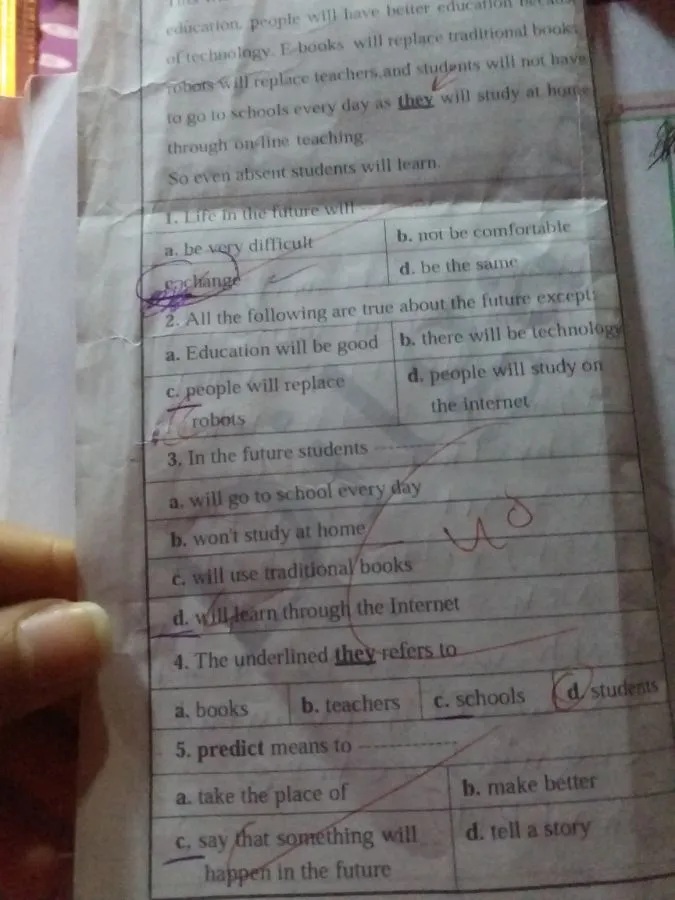 education, people will have better education
of technology. E-books will replace traditional books,
robots will replace teachers,and students will not have
to go to schools every day as they will study at home
through on-line teaching.
So even absent students will learn.
1. Life in the future will
a. be very difficult b. not be comfortable
c. change d. be the same
2. All the following are true about the future except:
a. Education will be good b. there will be technology
c. people will replace robots d. people will study on the internet
3. In the future students ------------
a. will go to school every day
b. won't study at home
c. will use traditional books
d. will learn through the Internet
4. The underlined they refers to
a. books b. teachers c. schools d. students
5. predict means to ------------
a. take the place of b. make better
c. say that something will happen in the future d. tell a story